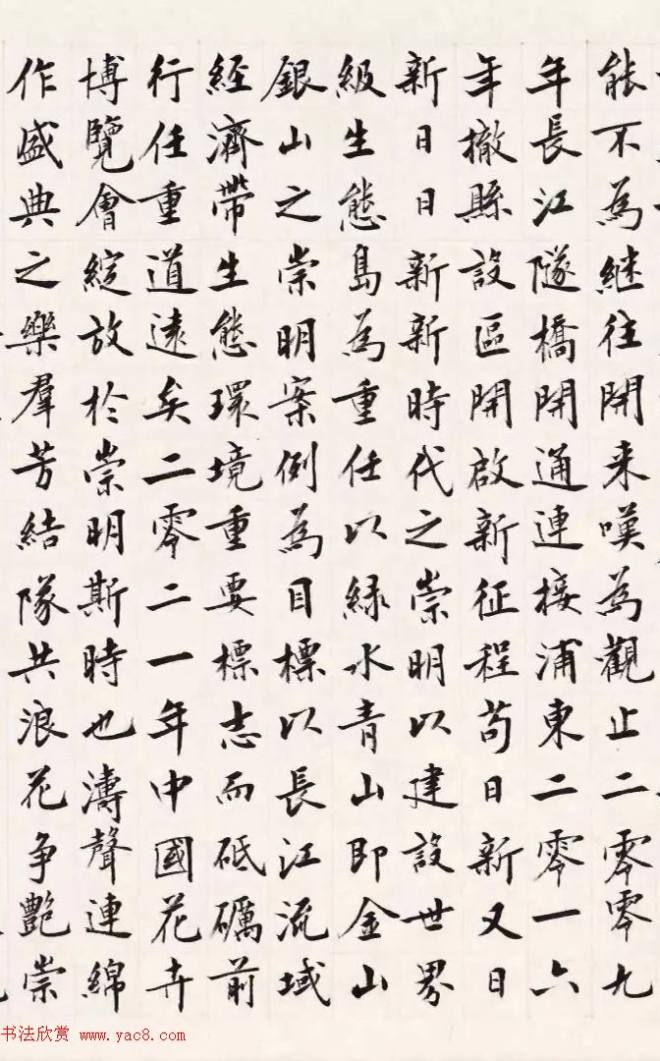 能不為継往開来嘆為觀止二零零九
年長江隧橋開通連接浦東二零一六
年撤縣設區開啟新征程苟日新又日
新日日新新時代之崇明以建設世界
級生態島為重任以緑水青山即金山
銀山之崇明案例為目標以長江流域
經濟帶生態環境重要標志而砥礪前
行任重道遠矣二零二一年中國花卉
博覽會綻放於崇明斯時也濤聲連綿
作盛典之樂羣芳結隊共浪花争艷崇
书法欣赏 www.yac8.com